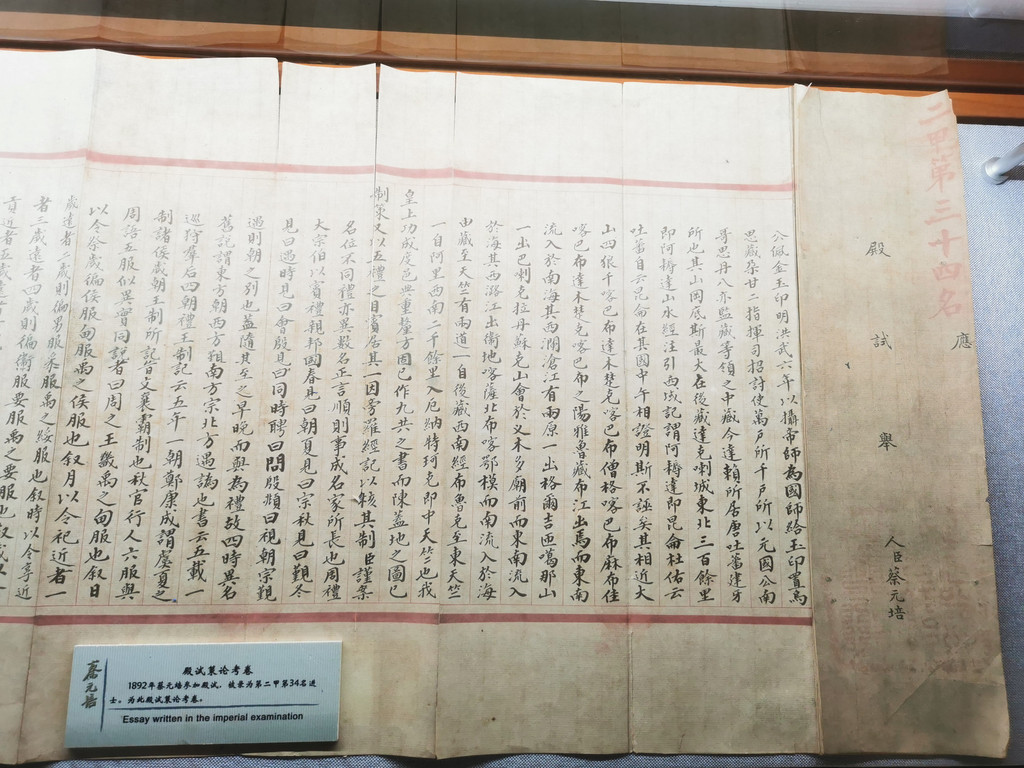 二甲第三十四名
應
殿試舉人臣蔡元培
公佩金玉印明洪武六年以攝帝師為國師給玉印置烏
思藏朵甘二指揮司招討使萬戶所千戶所以元國公南
哥思丹八亦監藏等領之中藏今達賴所居唐吐蕃建牙
所也其山岡底斯最大在後藏達克喇城東北三百餘里
即阿耨達山水經注引西域記謂阿耨達即昆侖杜佑云
吐蕃自云昆侖在其國中午相證明斯不誣矣其相近大
山四狼千喀巴布達木楚克喀巴布僧格喀巴布麻布佳
喀巴布達木楚克喀巴布之陽雅魯藏布江出焉而東南
流入於南海其西瀾滄江有兩原一出格爾吉匝噶那山
一出巴喇克拉丹蘇克山會於义木多廟前而東南流入
於海其西潞江出衛地喀薩北布喀鄂模而南流入於海
由藏至天竺有兩道一自後藏西南經布魯克至東天竺
一自阿里西南二千餘里入厄納特珂克即中天竺也我
皇上功成度邑典重釐方固已作九共之書而陳蓋地之圖已
制策又以五禮之目賓居其一因旁羅經記以覈其制臣謹案
名位不同禮亦異數名正言順則事成名家所長也周禮
大宗伯以賓禮親邦國春見曰朝夏見曰宗秋見曰覲冬
見曰遇時見曰會殷見曰同時聘曰問殷頫曰視朝宗覲
遇則朝之別也蓋隨其至之早晚而與為禮故四時異名
舊說謂東方朝西方覲南方宗北方遇譌也書云五載一
巡狩羣后四朝禮王制記云五年一朝鄭康成謂虞夏之
制諸侯歲朝王制所記晉文襄霸制也秋官行人六服與
周語五服似異實同說者曰周之王畿禹之甸服也叙日
以今祭歲徧侯服甸服禹之侯服也叙月以令祀近者一
歲達者二歲則徧男服采服禹之綏服也叙時以令享近
者三歲遠者四歲則徧衛服要服禹之要服也叙歲以令
貢近者五歲
蔡元培
殿试策论考卷
1892年蔡元培参加殿试，被录为第二甲第34名进
士。为此殿试策论考卷。
Essay written in the imperial examination